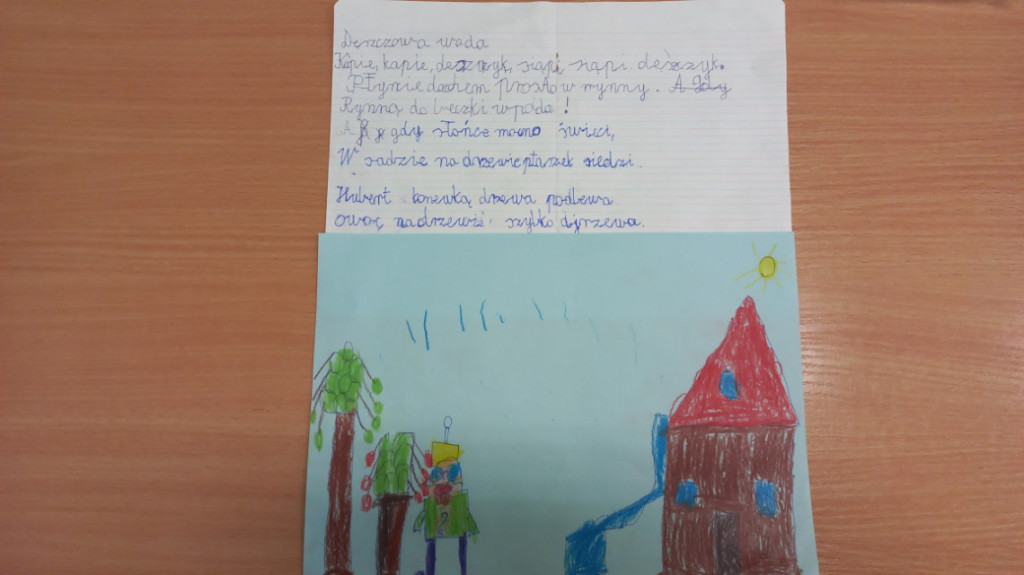 Deszczowa woda
Kapie, kapie, deszczyk, siąpi, siąpi deszczyk.
Płynie dachem prosto w rynny. A gdy
Rynną do beczki wpada!
A gdy słońce mocno świeci,
W sadzie na drzewie ptaszek siedzi.
Hubert konewką drzewa podlewa
owoc na drzewie szybko dojrzewa.